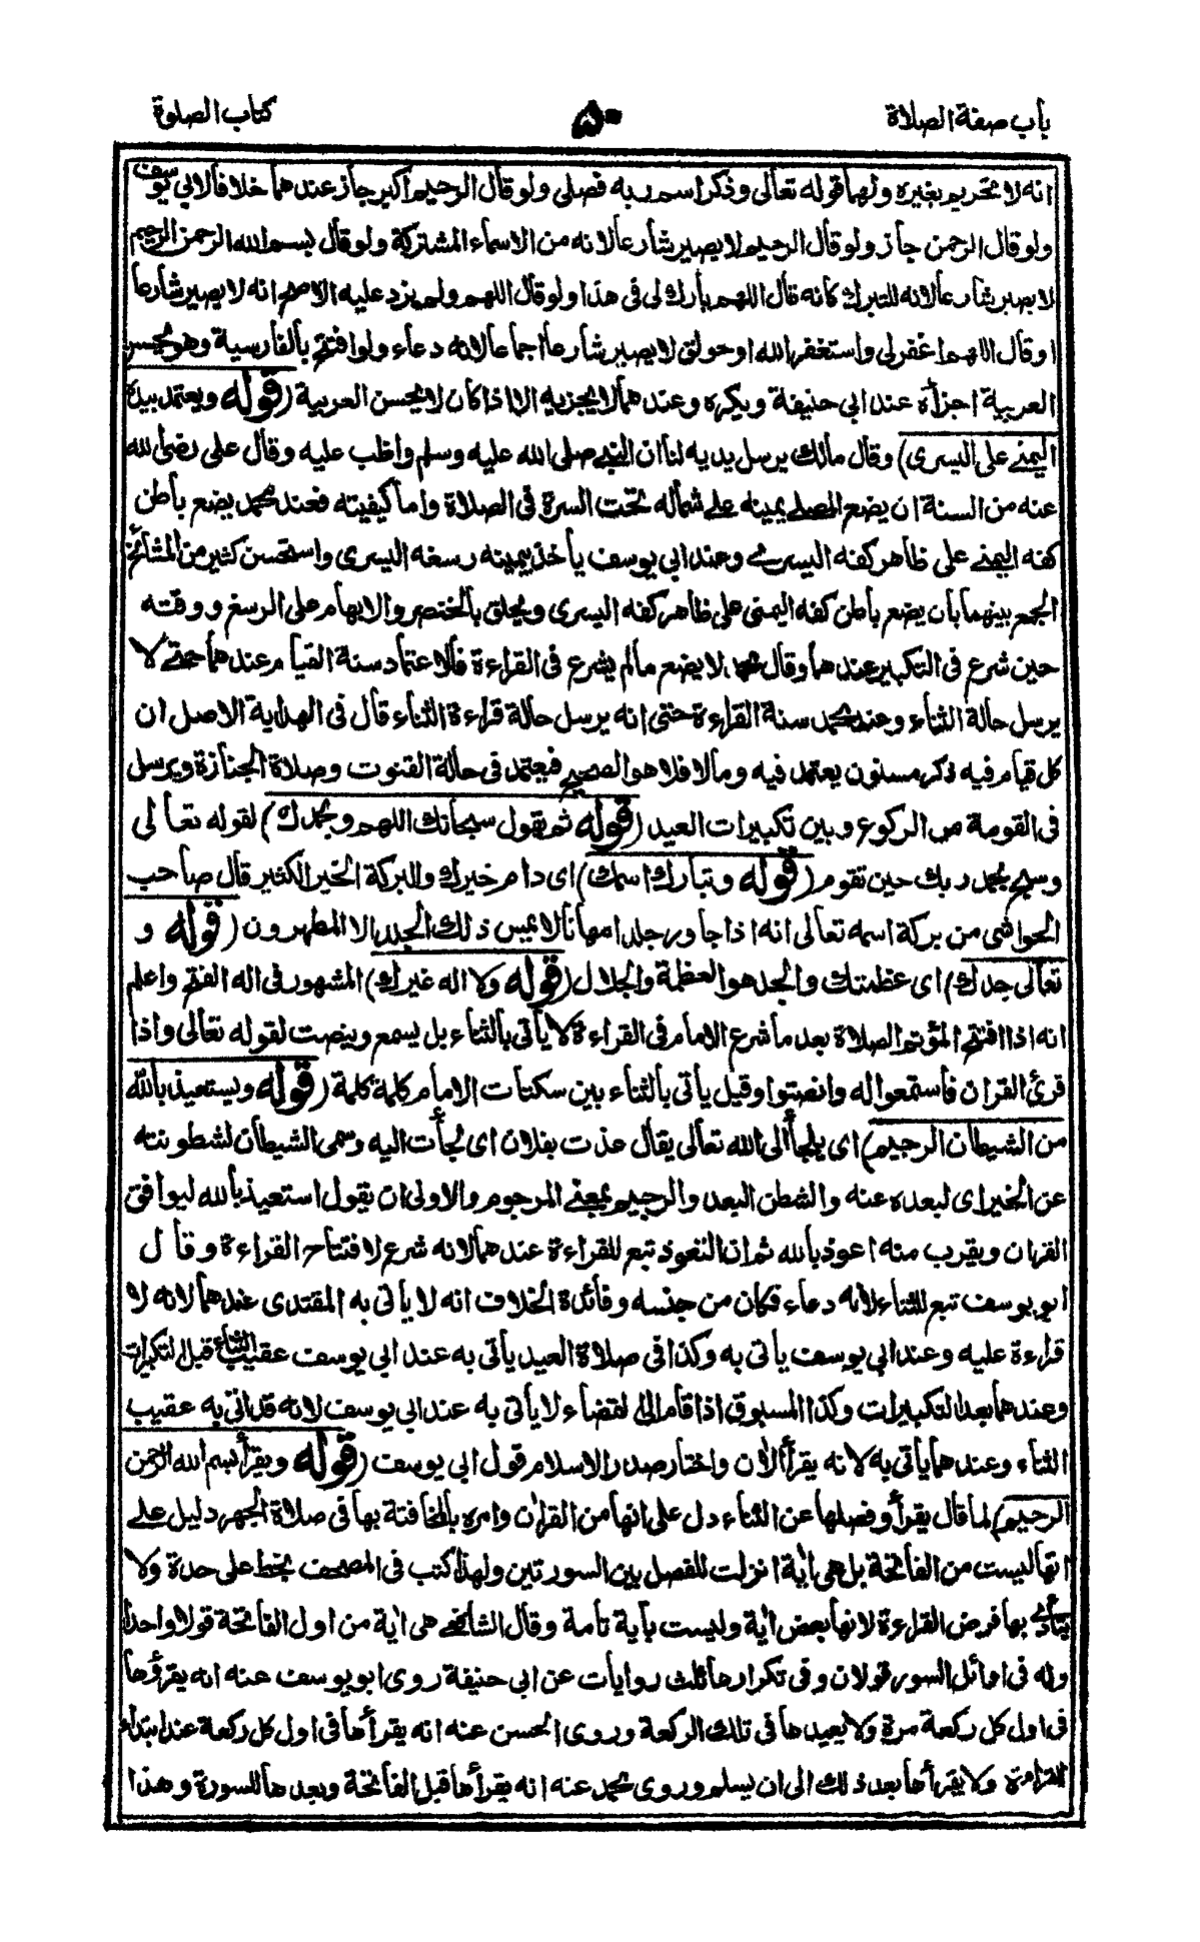 باب صفة الصلاة
۵۰
كتاب الصلوة
انه لا تحريم بغيره ولهما قوله تعالى وذكر اسم ربه فصلى ولو قال الرحيم اكبر جاز عندهما خلافا لابي يوسف
ولو قال الرحمن جاز ولو قال الرحيم لا يصير شارعا لانه من الاسماء المشتركة ولو قال بسم الله الرحمن الرحيم
لا يصير شارعا لانه للتبرك كانه قال اللهم بارك لى فى هذا ولو قال اللهم ولم يزد عليه الاصح انه لا يصير شارعا
او قال اللهم اغفر لى واستغفر الله او حولق لا يصير شارعا اجماعا لانه دعاء ولو افتتح بالفارسية وهو يحسن
العربية اجزأه عند ابي حنيفة ويكره وعندهما لا يجزيه الا اذا كان لا يحسن العربية (قوله ويعتمد بيده
اليمنى على اليسرى) وقال مالك يرسل يديه لنا ان النبى صلى الله عليه وسلم واظب عليه وقال على رضى الله
عنه من السنة ان يضع المصلى يمينه على شماله تحت السرة فى الصلاة واما كيفيته فعند محمد يضع باطن
كفه اليمنى على ظاهر كفه اليسرى وعند ابي يوسف يأخذ بيمينه رسغه اليسرى واستحسن كثير من المشائخ
الجمع بينهما بان يضع باطن كفه اليمنى على ظاهر كفه اليسرى ويحلق بالخنصر والابهام على الرسغ ووقته
حين شرع فى التكبير عندهما وقال محمد لا يضع مالم يشرع فى القراءة فالاعتماد سنة القيام عندهما حتى لا
يرسل حالة الثناء وعند محمد سنة القراءة حتى انه يرسل حالة قراءة الثناء قال فى الهداية الاصل ان
كل قيام فيه ذكر مسنون يعتمد فيه ومالا فلا هو الصحيح فيعتمد فى حالة القنوت وصلاة الجنازة ويرسل
فى القومة من الركوع وبين تكبيرات العيد (قوله ثم يقول سبحانك اللهم وبحمدك) لقوله تعالى
وسبح بحمد ربك حين تقوم (قوله وتبارك اسمك) اى دام خيرك والبركة الخير الكثير قال صاحب
الحواشى من بركة اسمه تعالى انه اذا جاور جلدا مهانا لا يمس ذلك الجلد الا المطهرون (قوله و
تعالى جدك) اى عظمتك والجد هو العظمة والجلال (قوله ولا اله غيرك) المشهور فى اله الفتح واعلم
انه اذا افتتح المؤتم الصلاة بعد ما شرع الامام فى القراءة لا يأتى بالثناء بل يسمع وينصت لقوله تعالى واذا
قرئ القران فاستمعوا له وانصتوا وقيل يأتى بالثناء بين سكتات الامام كلمة كلمة (قوله ويستعيذ بالله
من الشيطان الرجيم) اى يلجأ الى الله تعالى يقال عذت بفلان اى لجأت اليه وسمى الشيطان لشطونته
عن الخير اى لبعده عنه والشطن البعد والرجيم بمعنى المرجوم والاولى ان يقول استعيذ بالله ليوافق
القران ويقرب منه اعوذ بالله ثم ان التعوذ تبع للقراءة عندهما لانه شرع لافتتاح القراءة وقال
ابو يوسف تبع للثناء لانه دعاء فكان من جنسه وفائدة الخلاف انه لا يأتى به المقتدى عندهما لانه لا
قراءة عليه وعند ابي يوسف يأتى به وكذا فى صلاة العيد يأتى به عند ابي يوسف عقيب الثناء قبل التكبيرات
وعندهما بعد التكبيرات وكذا المسبوق اذا قام الى القضاء لا يأتى به عند ابي يوسف لانه قد اتى به عقيب
الثناء وعندهما يأتى به لانه يقرأ الان واختار صدر الاسلام قول ابي يوسف (قوله ويقرأ بسم الله الرحمن
الرحيم) لما قال يقرأ وفصلها عن الثناء دل على انها من القران وامره بالمخافتة بها فى صلاة الجهر دليل على
انها ليست من الفاتحة بل هى اٰية انزلت للفصل بين السورتين ولهذا كتب فى المصحف بخط على حدة ولا
يتأدى بها فرض القراءة لانها بعض اٰية وليست بآية تامة وقال الشافعى هى اٰية من اول الفاتحة قولا واحدا
وله فى اوائل السور قولان وفى تكرارها ثلث روايات عن ابي حنيفة روى ابو يوسف عنه انه يقرؤها
فى اول كل ركعة مرة ولا يعيدها فى تلك الركعة وروى الحسن عنه انه يقرأها فى اول كل ركعة عند ابتداء
القراءة ولا يقرأها بعد ذلك الى ان يسلم وروى محمد عنه انه يقرأها قبل الفاتحة وبعدها للسورة وهذا